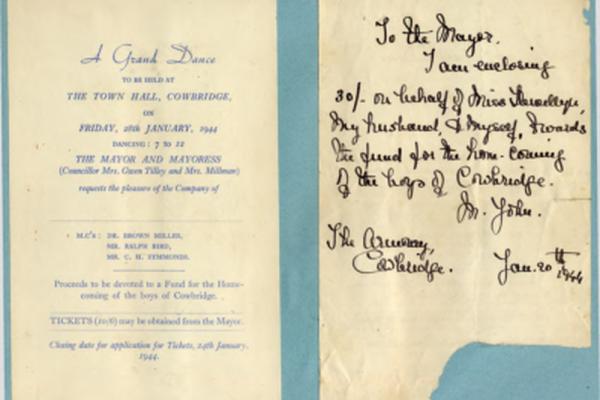 A Grand Dance
TO BE HELD AT
THE TOWN HALL, COWBRIDGE,
ON
FRIDAY, 28th JANUARY, 1944
DANCING : 7 TO 12
THE MAYOR AND MAYORESS
(Councillor Mrs. Gwen Tilley and Mrs. Millman)
requests the pleasure of the Company of
M.C's : DR. BROWN MILLER,
MR. RALPH BIRD,
MR. C. H. SYMMONDS.
Proceeds to be devoted to a Fund for the Home-
coming of the boys of Cowbridge.
TICKETS (10/6) may be obtained from the Mayor.
Closing date for application for Tickets, 24th January,
1944.
To the Mayor.
I am enclosing
30/- on behalf of Miss Llewellyn,
My husband, & Myself, towards
the fund for the home-coming
of the boys of Cowbridge.
M. John.
The Armoury,
Cowbridge. Jan. 20th 1944